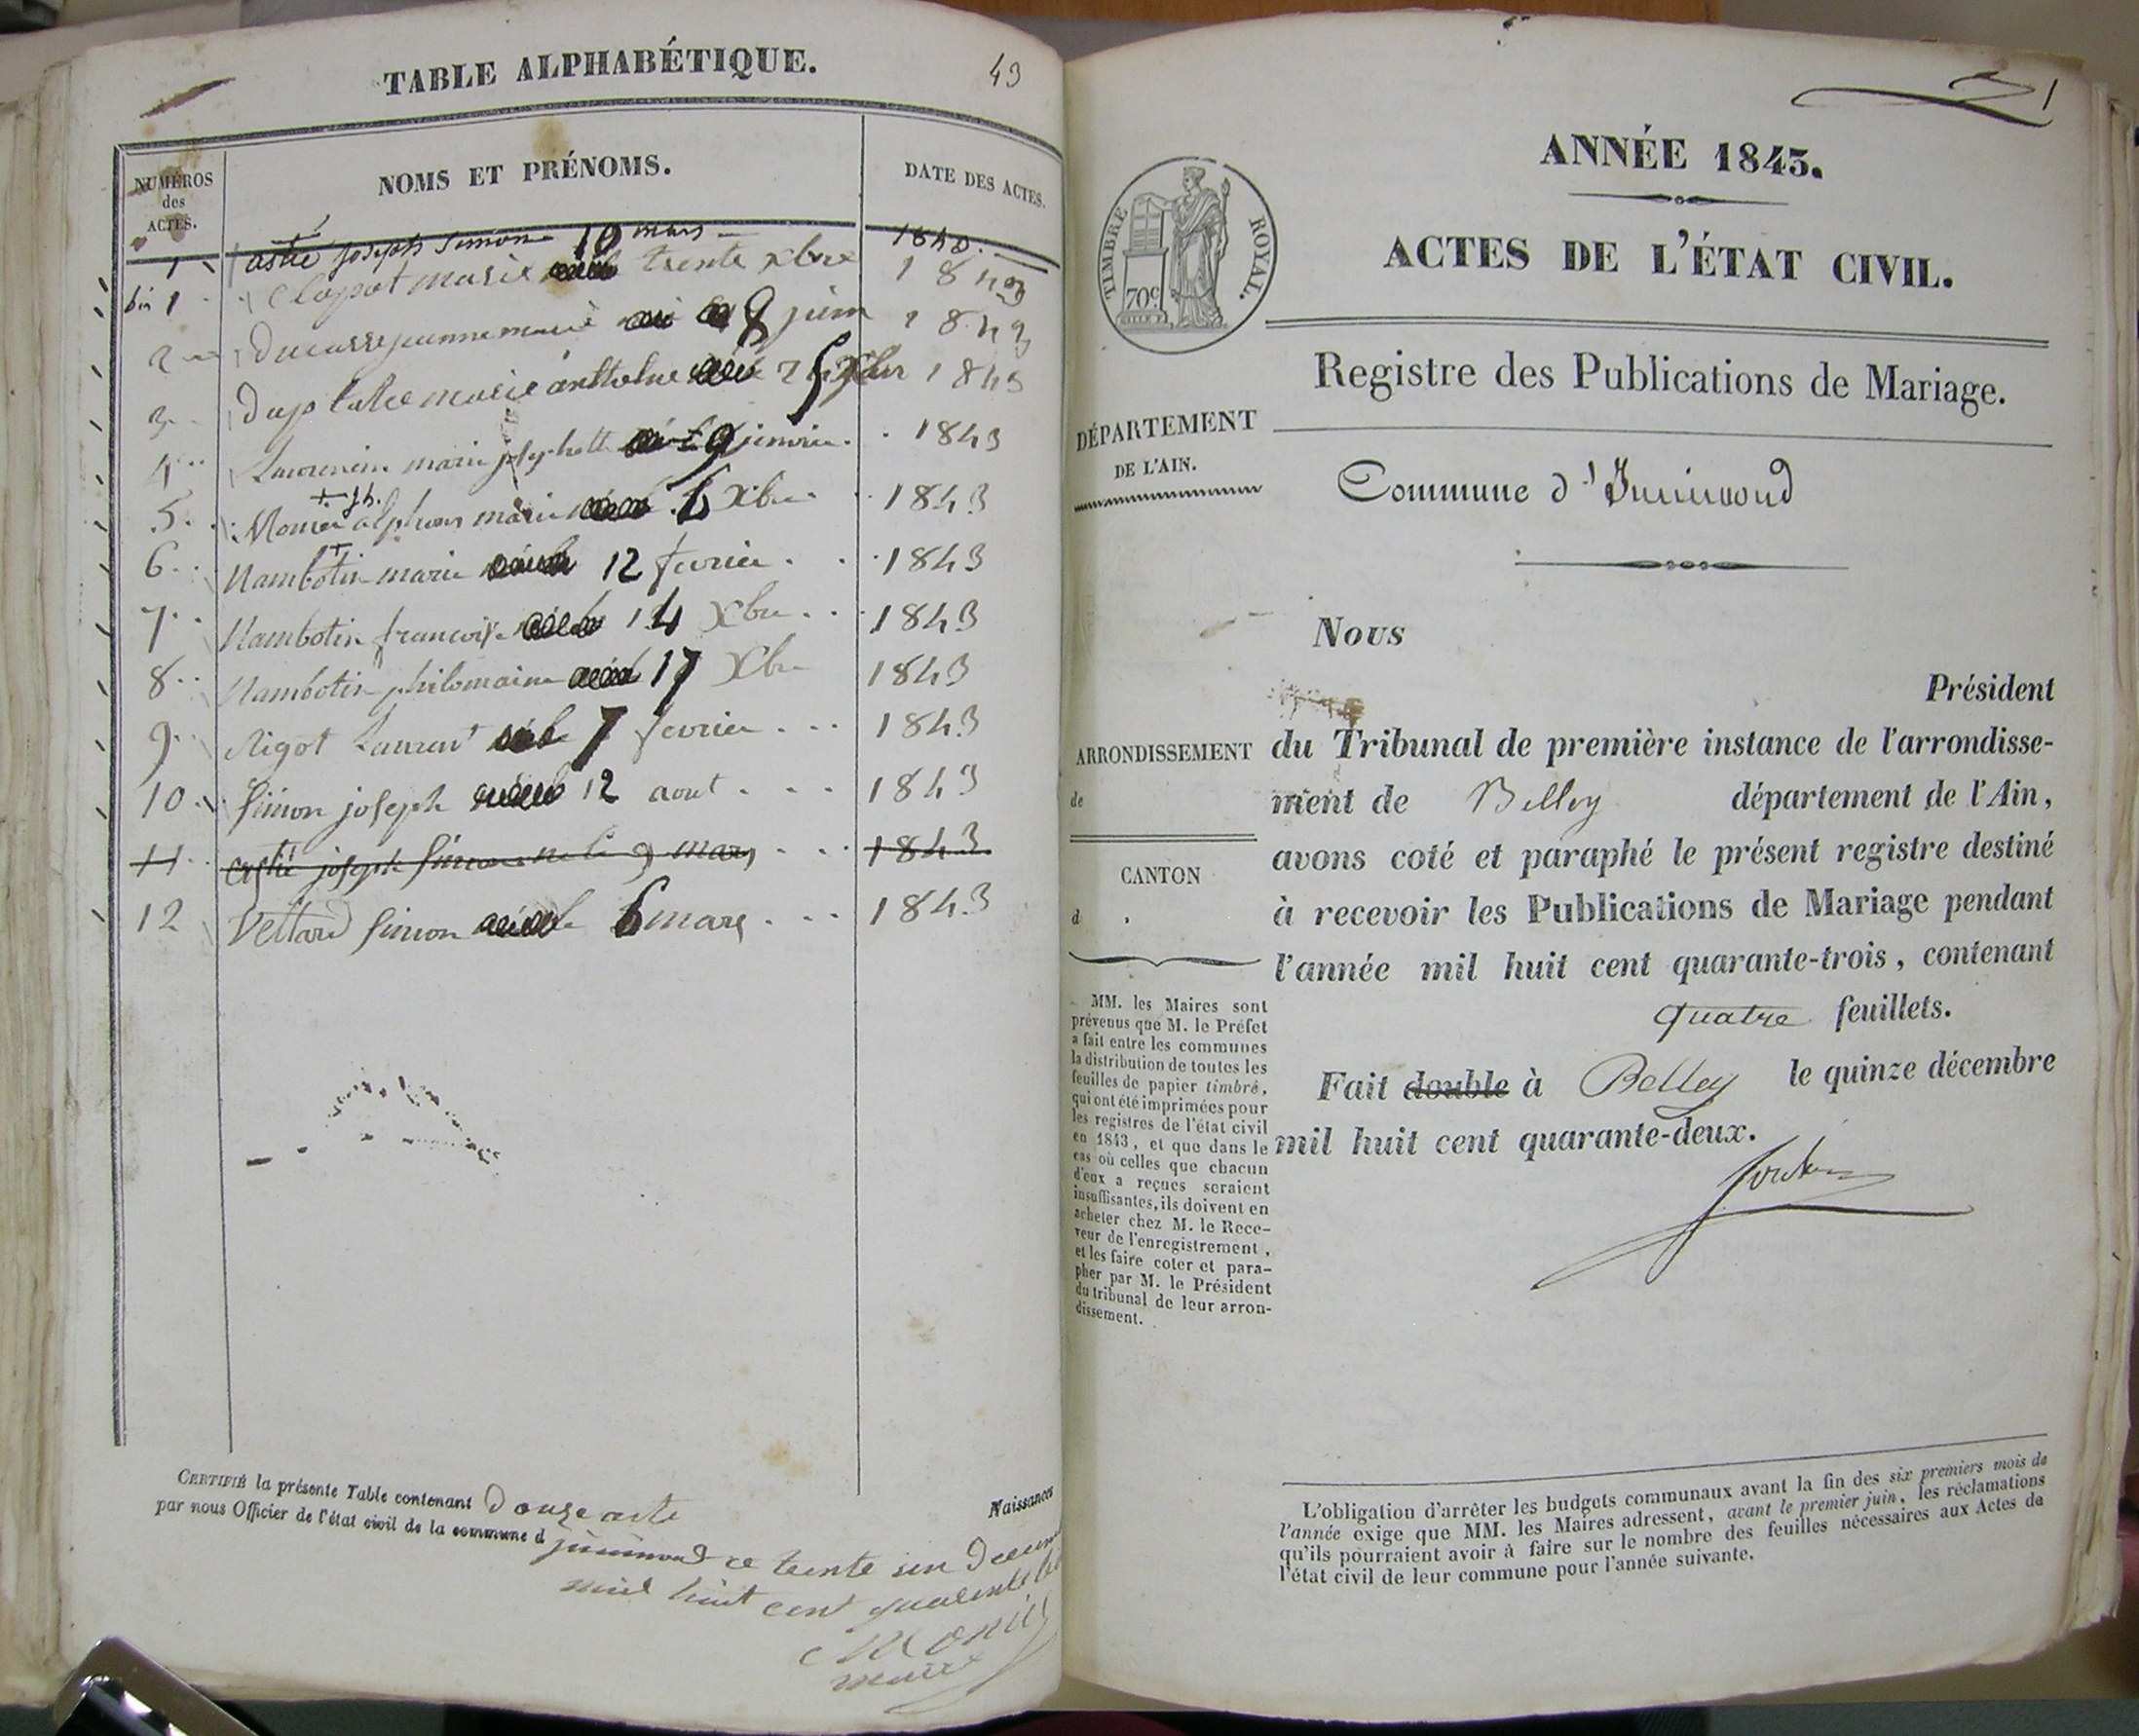 TABLE ALPHABÉTIQUE.
43
NUMÉROS
des
ACTES.
NOMS ET PRÉNOMS.
DATE DES ACTES.
1 astié joseph Simon 10 mars 1843.
bis 1 Clapot marie trente xbre 1843
2 Ducasse jeanne marie 8 juin 1843
3 marie anthelme 25 Xbre 1843
4 Laurencin marie josephette 9 janvier 1843
+ jh.
5. Monier alphons marie 6 Xbre 1843
6 Nambotin marie 12 fevrier 1843
7 Nambotin francoise 14 Xbre 1843
8 Nambotin philomaine 17 Xbre 1843
9 Rigot Laurent 7 fevrier 1843
10 Simon joseph 12 aout 1843
11 astié joseph Simon né le 9 mars 1843
12 Vettard Simon 6 mars 1843
CERTIFIÉ la présente Table contenant Douze acte
Naissances
par nous Officier de l'état civil de la commune d jnnimond ce trente un Decem
mil huit cent quarente
Monier
maire
1
TIMBRE ROYAL.
70c
ANNÉE 1843.
ACTES DE L'ÉTAT CIVIL.
Registre des Publications de Mariage.
DÉPARTEMENT
DE L'AIN.
Commune d'Innimond
Nous
Président
ARRONDISSEMENT
de
CANTON
d
du Tribunal de première instance de l'arrondisse-
ment de Belley département de l'Ain,
avons coté et paraphé le présent registre destiné
à recevoir les Publications de Mariage pendant
l'année mil huit cent quarante-trois, contenant
quatre feuillets.
Fait double à Belley le quinze décembre
mil huit cent quarante-deux.
MM. les Maires sont
prévenus que M. le Préfet
a fait entre les communes
la distribution de toutes les
feuilles de papier timbré,
qui ont été imprimées pour
les registres de l'état civil
en 1843, et que dans le
cas où celles que chacun
d'eux a reçues seraient
insuffisantes, ils doivent en
acheter chez M. le Rece-
veur de l'enregistrement,
et les faire coter et para-
pher par M. le Président
du tribunal de leur arron-
dissement.
L'obligation d'arrêter les budgets communaux avant la fin des six premiers mois de
l'année exige que MM. les Maires adressent, avant le premier juin, les réclamations
qu'ils pourraient avoir à faire sur le nombre des feuilles nécessaires aux Actes de
l'état civil de leur commune pour l'année suivante.